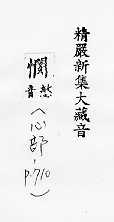 精嚴新集大藏音
憫
愍
音
(心部, p.710)